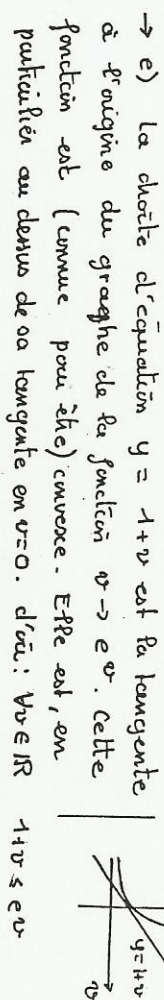 → e) La droite d'équation y = 1+v est la tangente
à l'origine du graphe de la fonction v → e^v. Cette
fonction est (connue pour être) convexe. Elle est, en
particulier au dessus de sa tangente en v=0. d'où : ∀v ∈ ℝ 1+v ≤ e^v
y=1+v
v